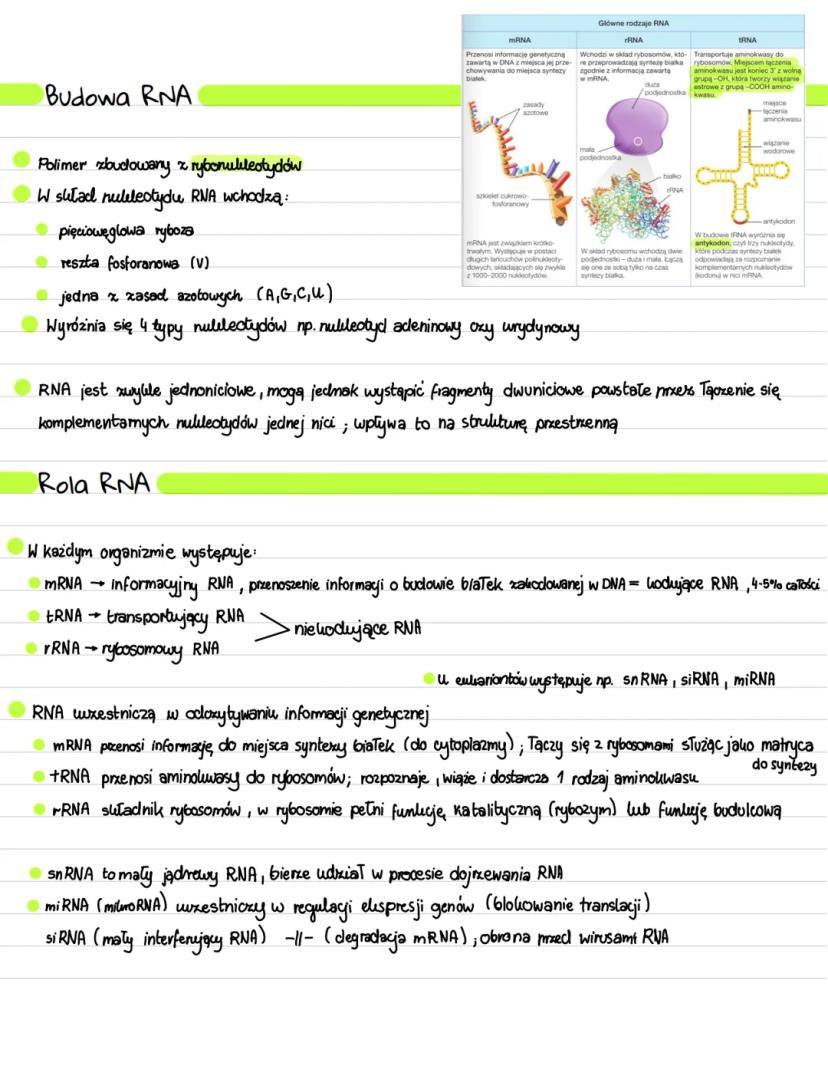 Główne rodzaje RNA
mRNA
Przenosi informację genetyczną
zawartą w DNA z miejsca jej prze-
chowywania do miejsca syntezy
białek.
zasady
azotowe
szkielet cukrowo-
fosforanowy
mRNA jest związkiem krótko-
trwałym. Występuje w postaci
długich łańcuchów polinukleoty-
dowych, składających się zwykle
z 1000–2000 nukleotydów.
rRNA
Wchodzi w skład rybosomów, któ-
re przeprowadzają syntezę białka
zgodnie z informacją zawartą
w mRNA.
duża
podjednostka
mała
podjednostka
białko
rRNA
W skład rybosomu wchodzą dwie
podjednostki – duża i mała. Łączą
się one ze sobą tylko na czas
syntezy białka.
tRNA
Transportuje aminokwasy do
rybosomów. Miejscem łączenia
aminokwasu jest koniec 3' z wolną
grupą –OH, która tworzy wiązanie
estrowe z grupą –COOH amino-
kwasu.
miejsce
łączenia
aminokwasu
wiązanie
wodorowe
antykodon
W budowie tRNA wyróżnia się
antykodon, czyli trzy nukleotydy,
które podczas syntezy białek
odpowiadają za rozpoznanie
komplementarnych nukleotydów
(kodonu) w nici mRNA.
Budowa RNA
Polimer zbudowany z rybonukleotydów
W skład nukleotydu RNA wchodzą:
pięciowęglowa ryboza
reszta fosforanowa (V)
jedna z zasad azotowych (A,G,C,U)
Wyróżnia się 4 typy nukleotydów np. nukleotyd adeninowy czy urydynowy
RNA jest zwykle jednoniciowe, mogą jednak wystąpić fragmenty dwuniciowe powstałe przez łączenie się
komplementarnych nukleotydów jednej nici ; wpływa to na strukturę przestrzenną
Rola RNA
W każdym organizmie występuje:
mRNA → informacyjny RNA, przenoszenie informacji o budowie białek zakodowanej w DNA = kodujące RNA, 4-5% całości
tRNA → transportujący RNA
rRNA → rybosomowy RNA
> niekodujące RNA
u eukariontów występuje np. snRNA, siRNA, miRNA
RNA uczestniczą w odczytywaniu informacji genetycznej
mRNA przenosi informację do miejsca syntezy białek (do cytoplazmy) ; łączy się z rybosomami służąc jako matryca
do syntezy
tRNA przenosi aminokwasy do rybosomów; rozpoznaje, wiąże i dostarcza 1 rodzaj aminokwasu
rRNA składnik rybosomów, w rybosomie pełni funkcję katalityczną (rybozym) lub funkcję budulcową
snRNA to mały jądrowy RNA, bierze udział w procesie dojrzewania RNA
miRNA (mikroRNA) uczestniczy w regulacji ekspresji genów (blokowanie translacji)
siRNA (mały interferujący RNA) -||- (degradacja mRNA) ; obrona przed wirusami RNA